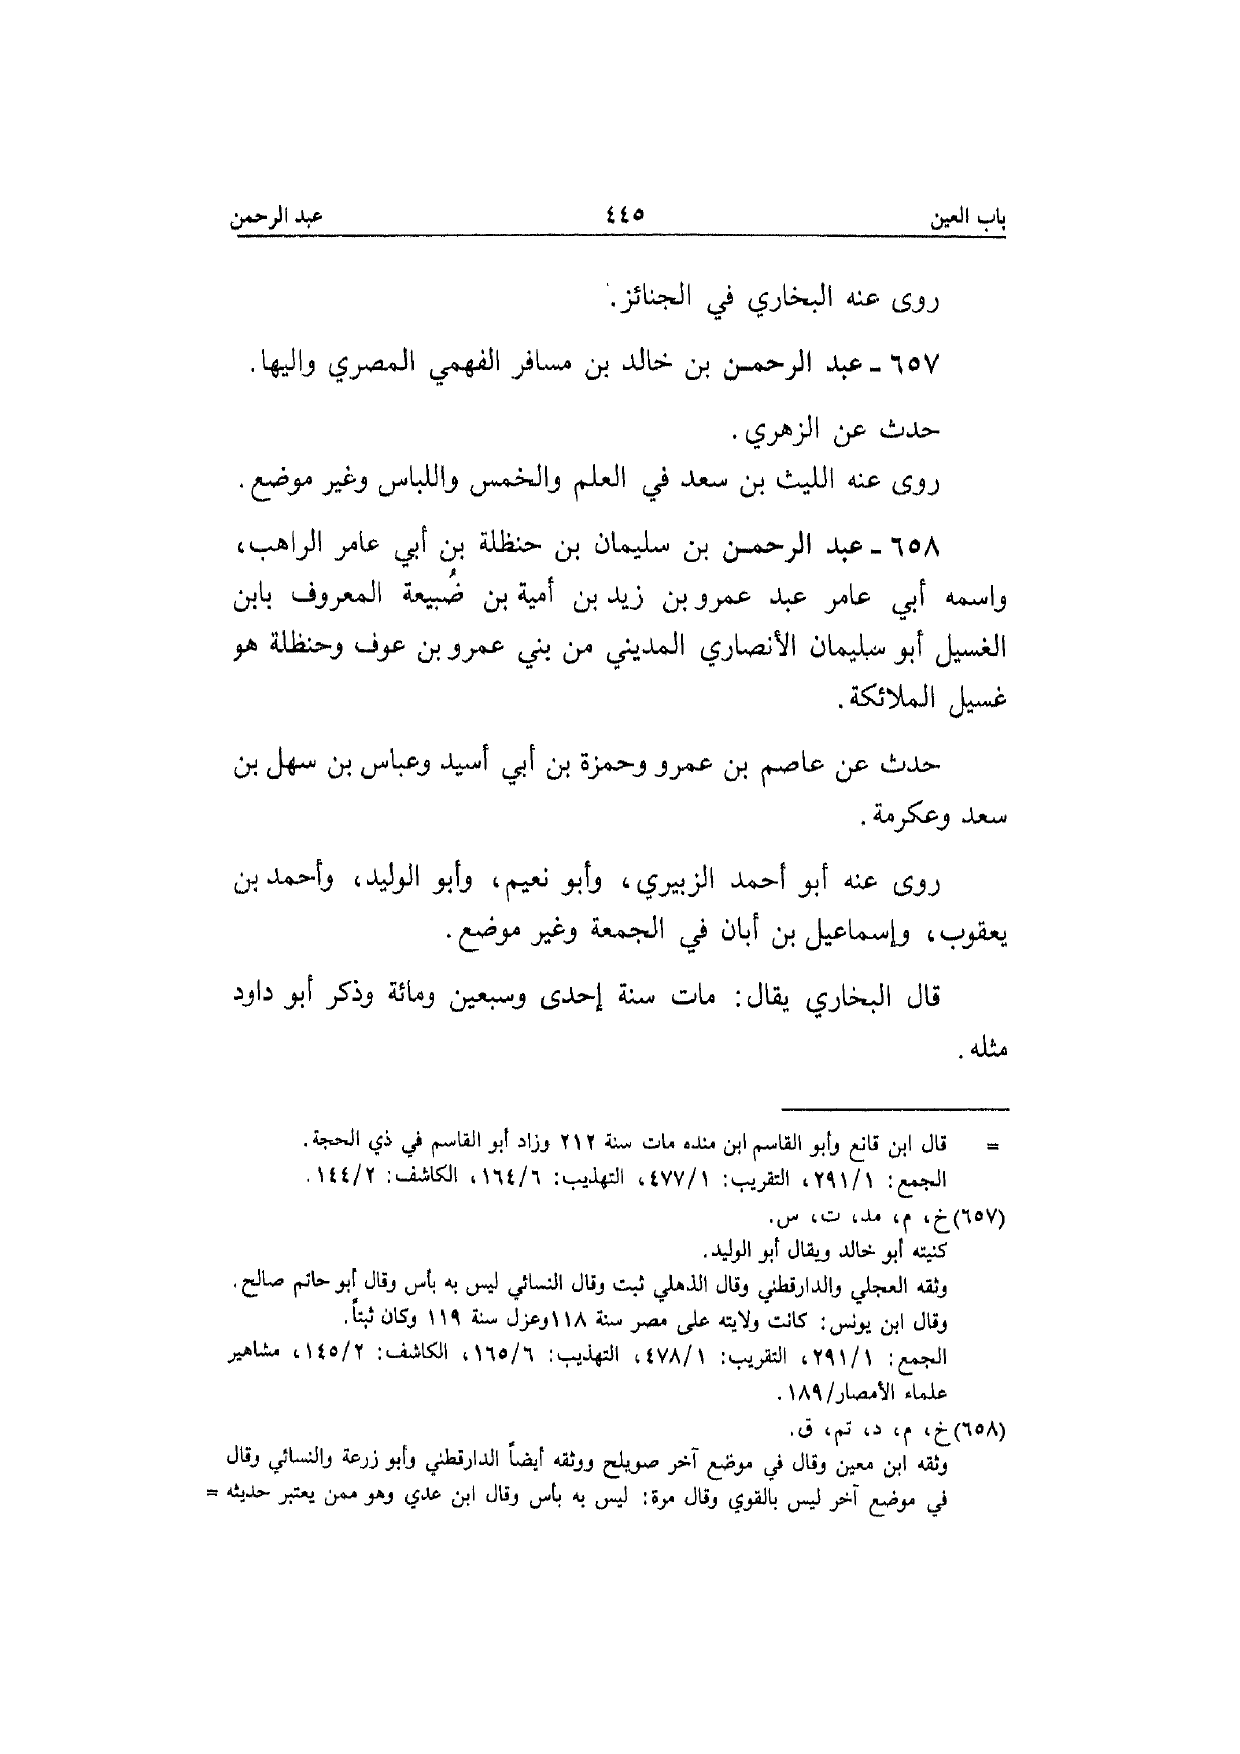 باب العين ٤٤٥ عبد الرحمن
روى عنه البخاري في الجنائز.
٦٥٧ ـ عبد الرحمن بن خالد بن مسافر الفهمي المصري واليها.
حدث عن الزهري.
روى عنه الليث بن سعد في العلم والخمس واللباس وغير موضع.
٦٥٨ ـ عبد الرحمن بن سليمان بن حنظلة بن أبي عامر الراهب،
واسمه أبي عامر عبد عمرو بن زيد بن أمية بن ضُبيعة المعروف بابن
الغسيل أبو سليمان الأنصاري المديني من بني عمرو بن عوف وحنظلة هو
غسيل الملائكة.
حدث عن عاصم بن عمرو وحمزة بن أبي أسيد وعباس بن سهل بن
سعد وعكرمة.
روى عنه أبو أحمد الزبيري، وأبو نعيم، وأبو الوليد، وأحمد بن
يعقوب، وإسماعيل بن أبان في الجمعة وغير موضع.
قال البخاري يقال: مات سنة إحدى وسبعين ومائة وذكر أبو داود
مثله.
= قال ابن قانع وأبو القاسم ابن منده مات سنة ٢١٢ وزاد أبو القاسم في ذي الحجة.
الجمع: ٢٩١/١، التقريب: ٤٧٧/١، التهذيب: ١٦٤/٦، الكاشف: ١٤٤/٢.
(٦٥٧) خ، م، مد، ت، س.
كنيته أبو خالد ويقال أبو الوليد.
وثقه العجلي والدارقطني وقال الذهلي ثبت وقال النسائي ليس به بأس وقال أبو حاتم صالح.
وقال ابن يونس: كانت ولايته على مصر سنة ١١٨ وعزل سنة ١١٩ وكان ثبتاً.
الجمع: ٢٩١/١، التقريب: ٤٧٨/١، التهذيب: ١٦٥/٦، الكاشف: ١٤٥/٢، مشاهير
علماء الأمصار/١٨٩.
(٦٥٨) خ، م، د، تم، ق.
وثقه ابن معين وقال في موضع آخر صويلح ووثقه أيضاً الدارقطني وأبو زرعة والنسائي وقال
في موضع آخر ليس بالقوي وقال مرة: ليس به بأس وقال ابن عدي وهو ممن يعتبر حديثه =